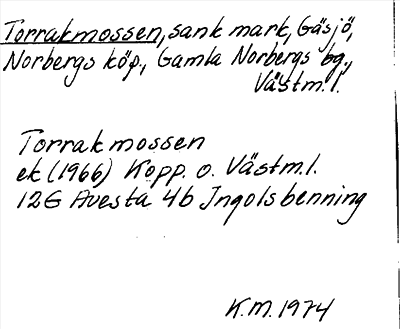 Torrakmossen, sank mark, Gäsjö,
Norbergs köp., Gamla Norbergs bg.,
Västm. l.
Torrakmossen
ek (1966) Kopp. o. Västm. l.
12G Avesta 4b Ingolsbenning
K.M. 1974